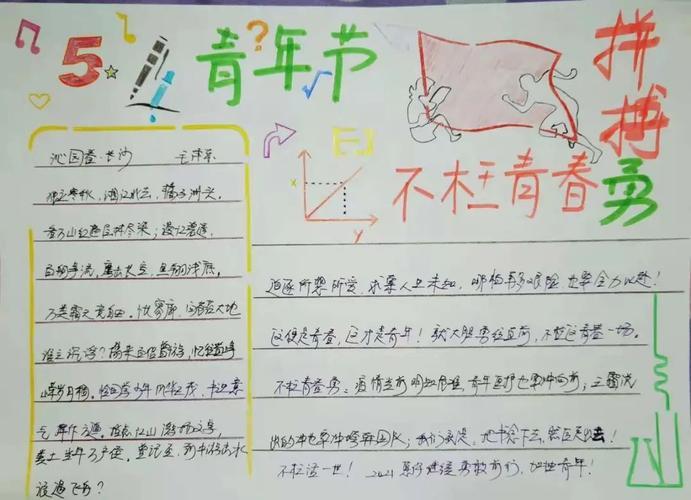 5
青年节
拼搏
不枉青春勇
x
y
沁园春·长沙 毛泽东
独立寒秋，湘江北去，橘子洲头。
看万山红遍，层林尽染；漫江碧透，
百舸争流。鹰击长空，鱼翔浅底，
万类霜天竞自由。怅寥廓，问苍茫大地
谁主沉浮？携来百侣曾游，忆往昔峥
嵘岁月稠。恰同学少年，风华正茂，书生意
气，挥斥方遒。指点江山，激扬文字，
粪土当年万户侯。曾记否，到中流击水
浪遏飞舟？
追逐所想所爱，求索人生未知，哪怕再多艰险，也要全力以赴！
这便是青春，这才是青年！就大胆勇往直前，不枉这青春一场。
不枉青春勇。疫情当前，明知危险，青年医护也要冲向前；
出的冲也要冲
不枉这一世！ 2021 青年！